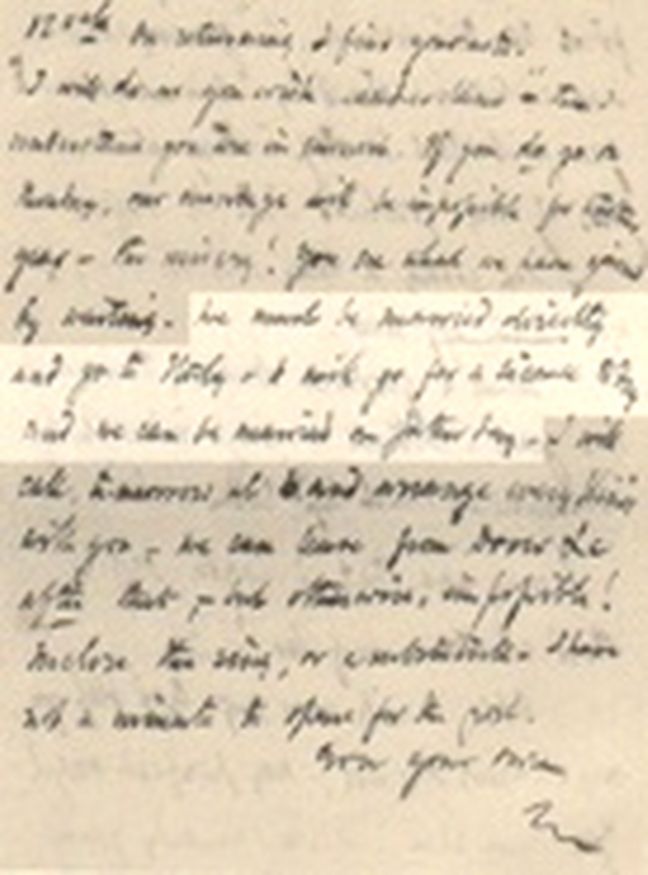 12 o'clk On returning I find your note.
"I will do as you wish "
understand you are in earnest. If you do go on
Monday, our marriage will be impossible for another
year - the misery! You see what we have gained
by waiting. We must be married directly
and go to Italy. I will go for a licence today
and we can be married on Saturday. I will
call tomorrow at 3 and arrange everything
with you. We can leave from Dover &c
after that, - but otherwise, impossible!
Inclose the ring, or a substitute. I have
not a minute to spare for the post.
Ever your own